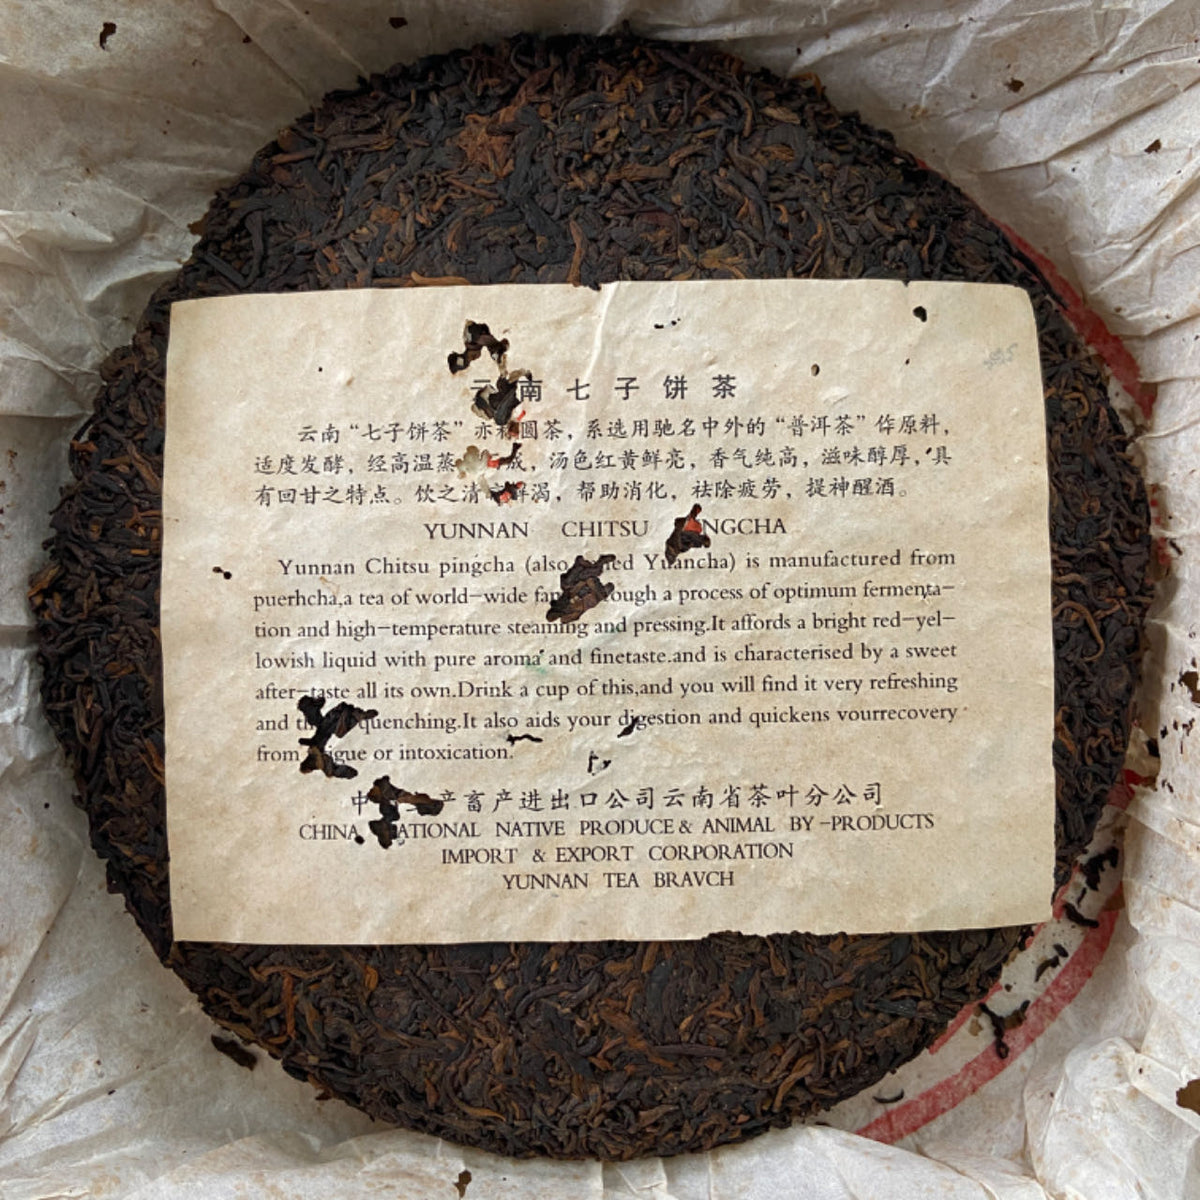 云南七子饼茶
云南“七子饼茶”亦称圆茶，系选用驰名中外的“普洱茶”作原料，
适度发酵，经高温蒸 成，汤色红黄鲜亮，香气纯高，滋味醇厚，具
有回甘之特点。饮之清 解渴，帮助消化，祛除疲劳，提神醒酒。
YUNNAN CHITSU NGCHA
Yunnan Chitsu pingcha (also Yuancha) is manufactured from
puerhcha,a tea of world-wide a process of optimum fermenta-
tion and high-temperature steaming and pressing.It affords a bright red-yel-
lowish liquid with pure aroma and finetaste.and is characterised by a sweet
after-taste all its own.Drink a cup of this,and you will find it very refreshing
and quenching.It also aids your digestion and quickens vourrecovery
from or intoxication.
中 产畜产进出口公司云南省茶叶分公司
CHINA NATIONAL NATIVE PRODUCE & ANIMAL BY-PRODUCTS
IMPORT & EXPORT CORPORATION
YUNNAN TEA BRAVCH